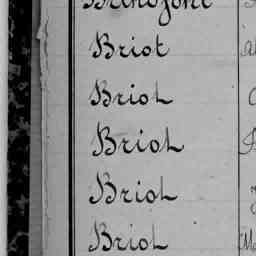 Briot
Briot
Briot
Briot
Briot